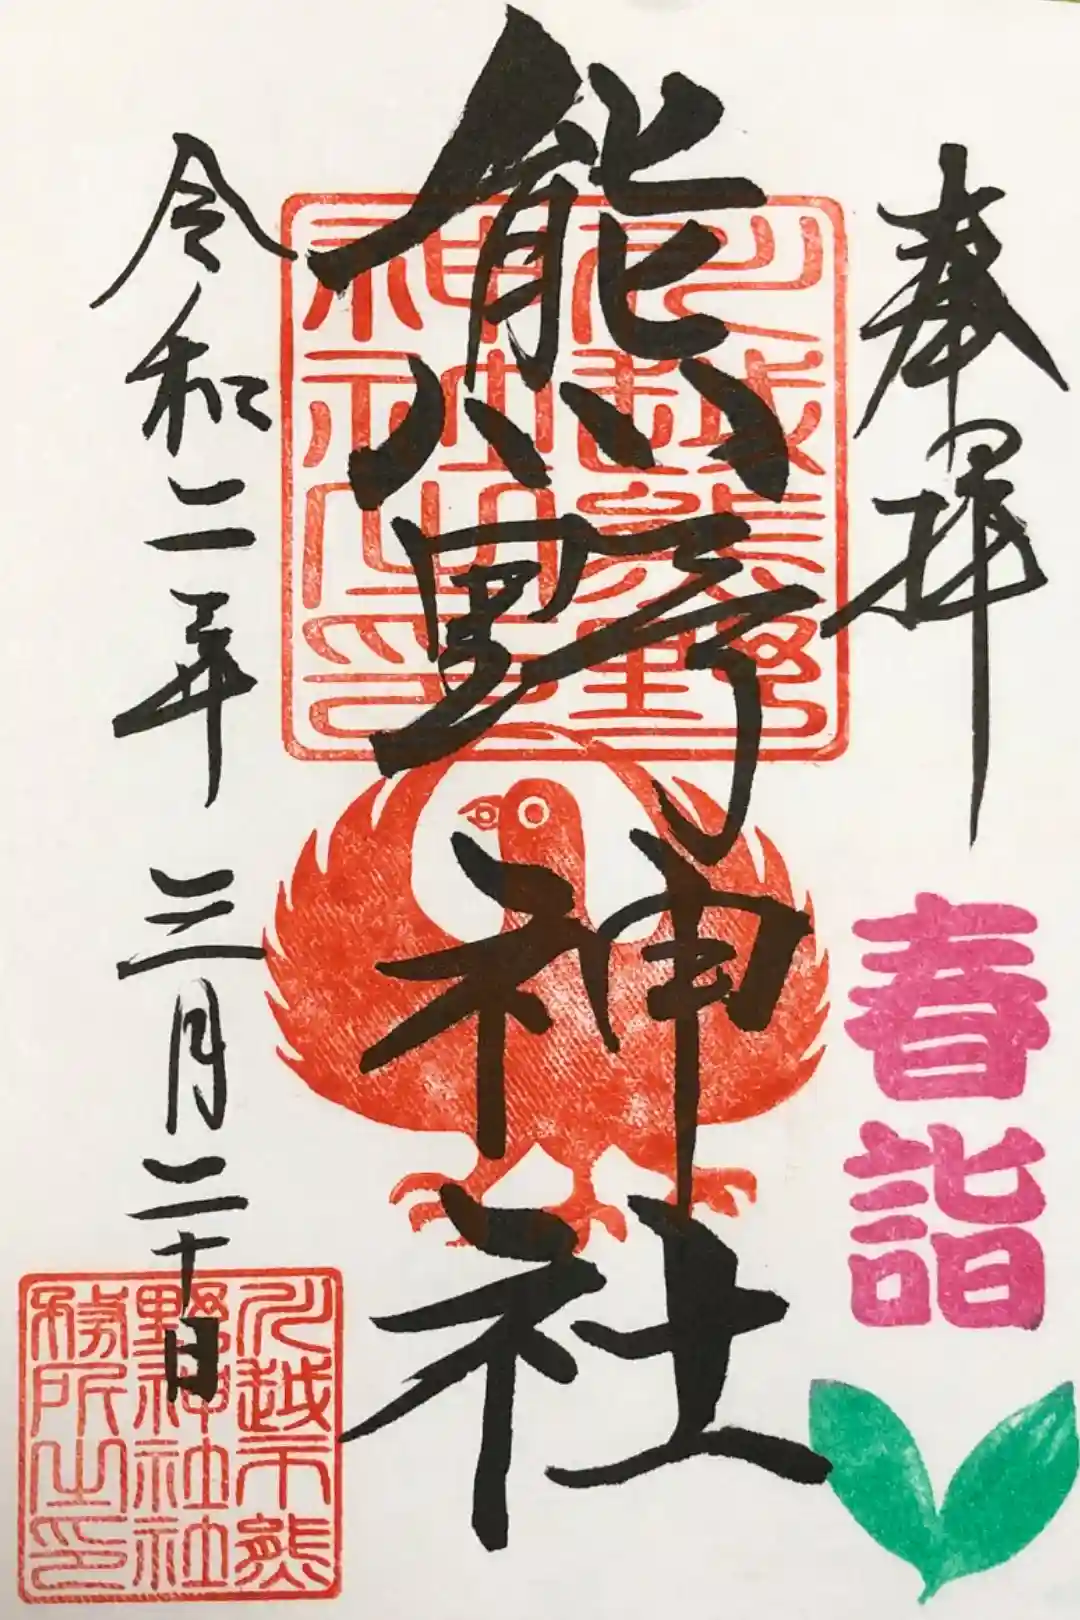 奉拝
春詣
熊野神社
川越熊野
神社之印
令和二年 三月二十日
川越市熊
野神社社
務所之印